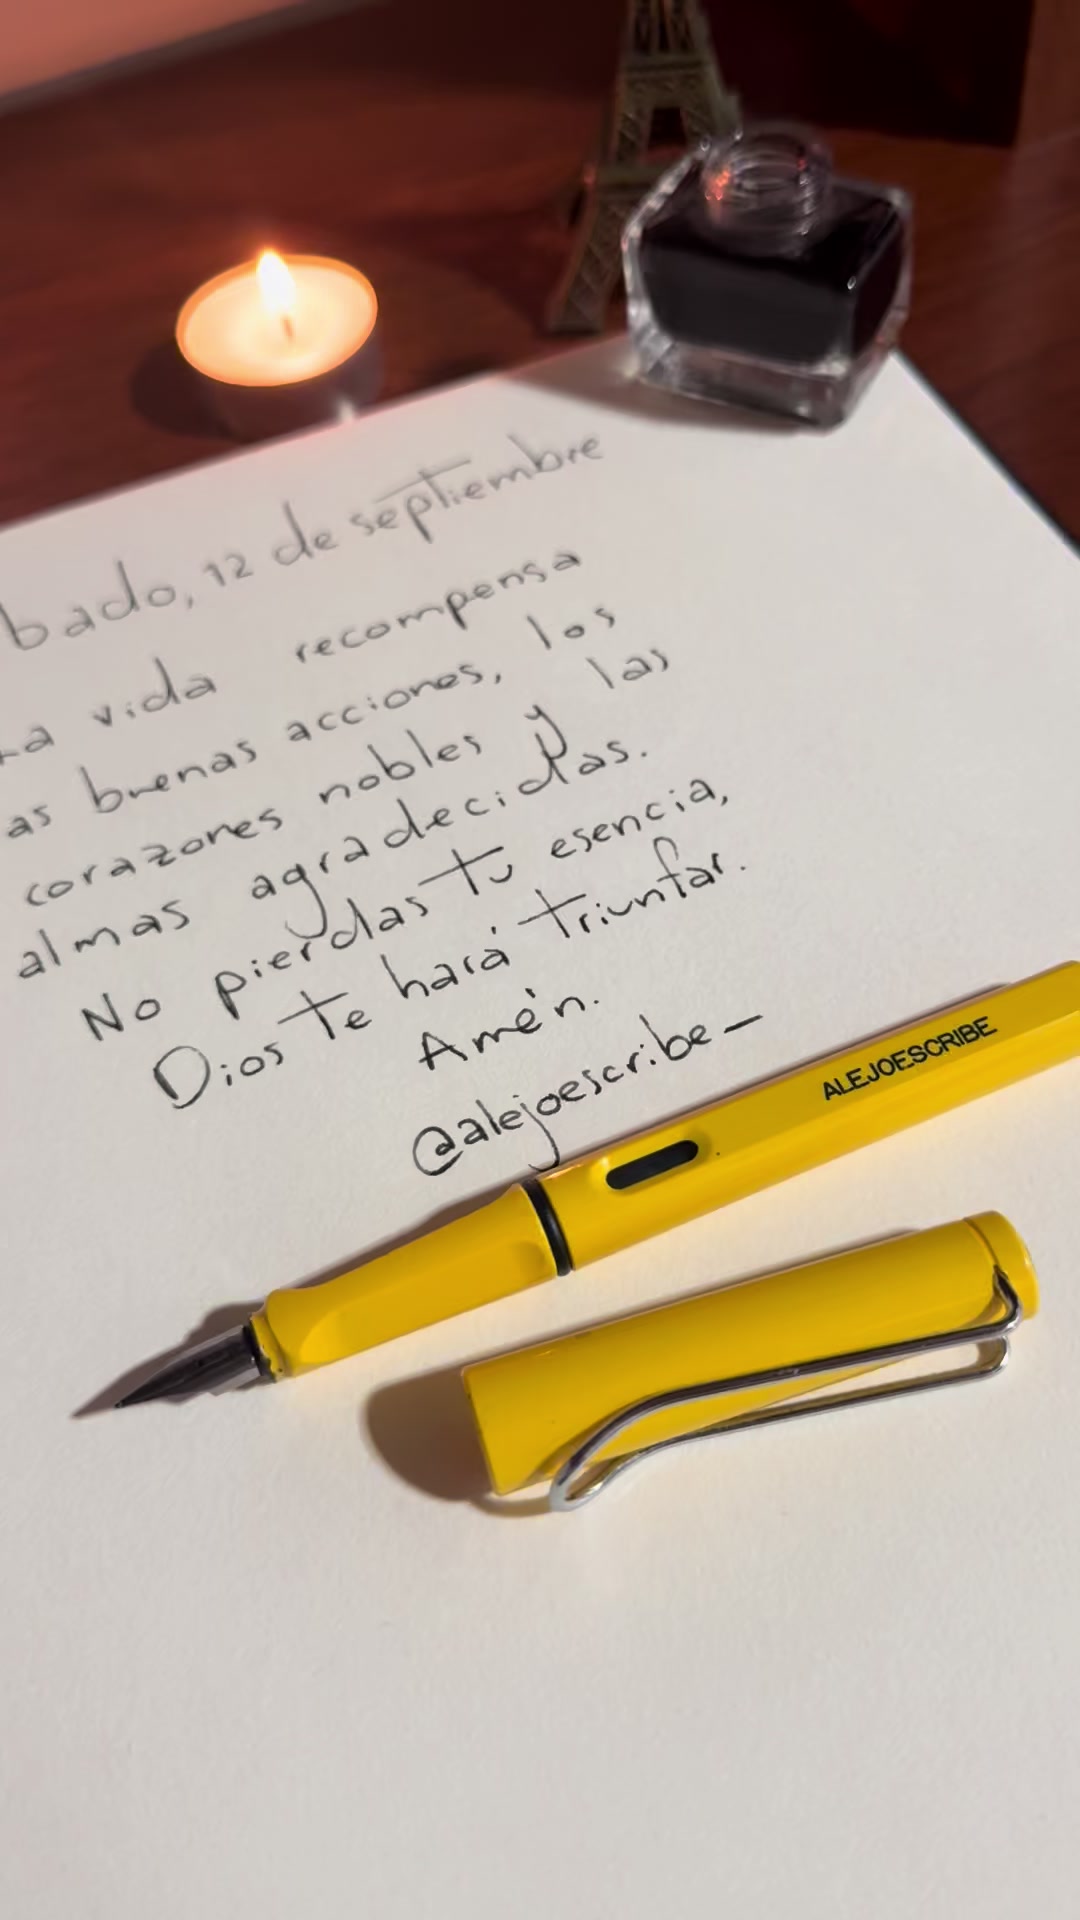 bado, 12 de septiembre
La vida recompensa
as buenas acciones, los
corazones nobles y las
almas agradecidas.
No pierdas tu esencia,
Dios te hará triunfar.
Amén.
@alejoescribe_
ALEJOESCRIBE